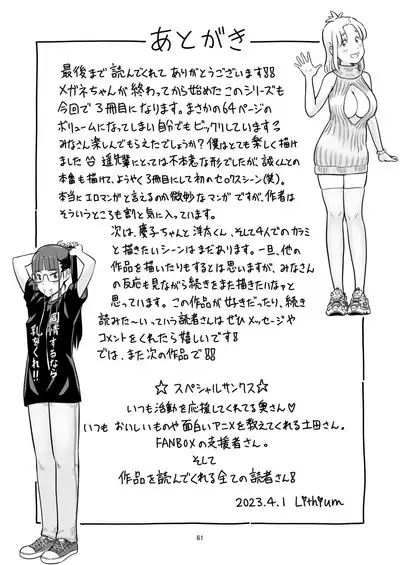 あとがき
最後まで読んでくれてありがとうございます!!
メガネちゃんが終わってから始めたこのシリーズも
今回で3冊目になります。まさかの64ページの
ボリュームになってしまい自分でもビックリしています
みなさん楽しんでもらえたでしょうか?僕はとても楽しく描け
ました 遥先輩にとっては不本意な形でしたが、誠くんとの
本番も描けて、ようやく3冊目にして初のセックスシーン(笑)。
本当にエロマンガと言えるのか微妙なマンガですが、作者は
そういうところも割と気に入っています。
次は、慶子ちゃんと洋太くん、そして4人でのカラミ
と描きたいシーンはまだあります。一旦、他の
作品を描いたりもするとは思いますが、みなさん
の反応も見ながら続きをまた描きたいなぁと
思っています。この作品が好きだったり、続き
読みた~いっていう読者さんはぜひメッセージや
コメントをくれたら嬉しいです!
では、また次の作品で!!
☆ スペシャルサンクス☆
いつも活動を応援してくれてる奥さん♡
いつも おいしいものや面白いアニメを教えてくれる土田さん。
FANBOXの支援者さん。
そして
作品を読んでくれる全ての読者さん!
2023.4.1 Lithium
同情するなら
乳をくれ!!
61